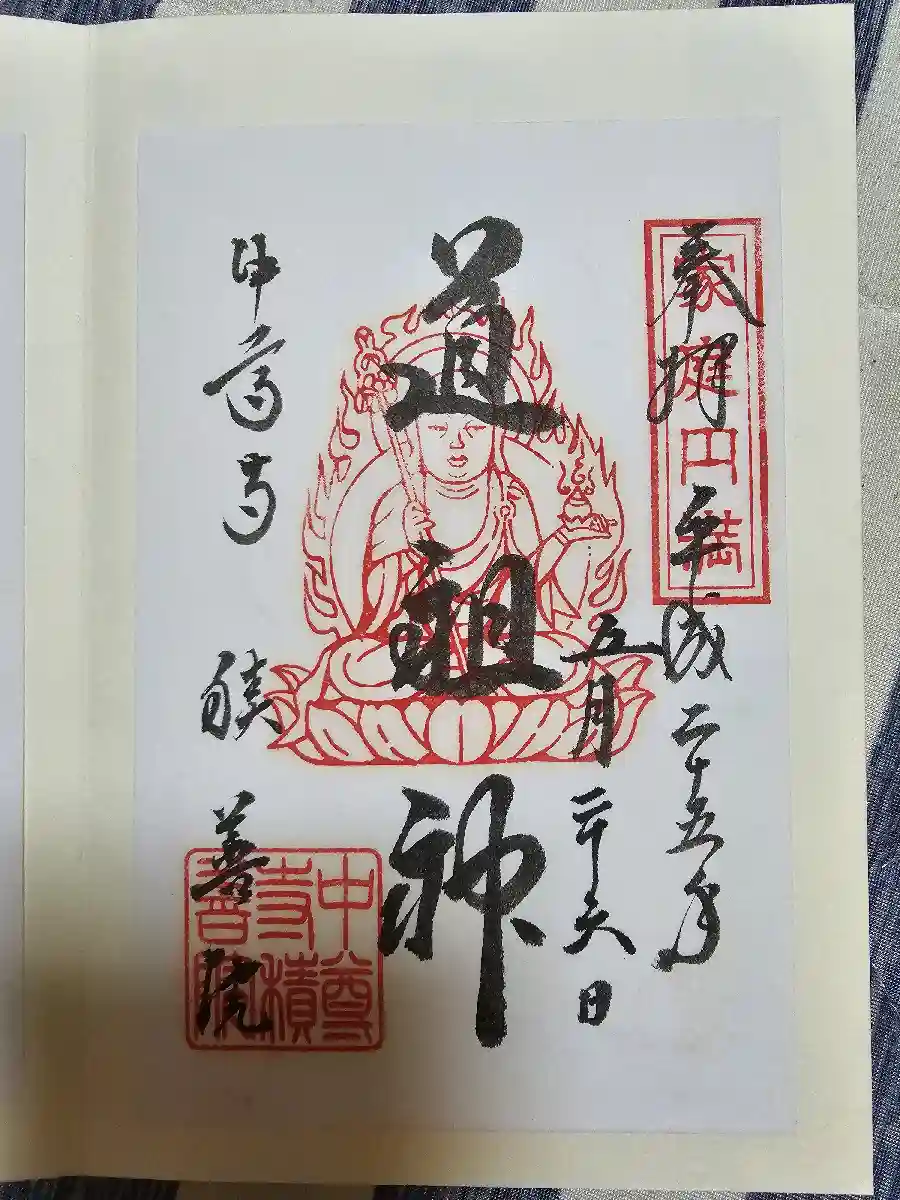 奉拝
家庭円満
平成二十五年
五月二十六日
道祖神
中尊寺 積善院
中尊
寺積
善院